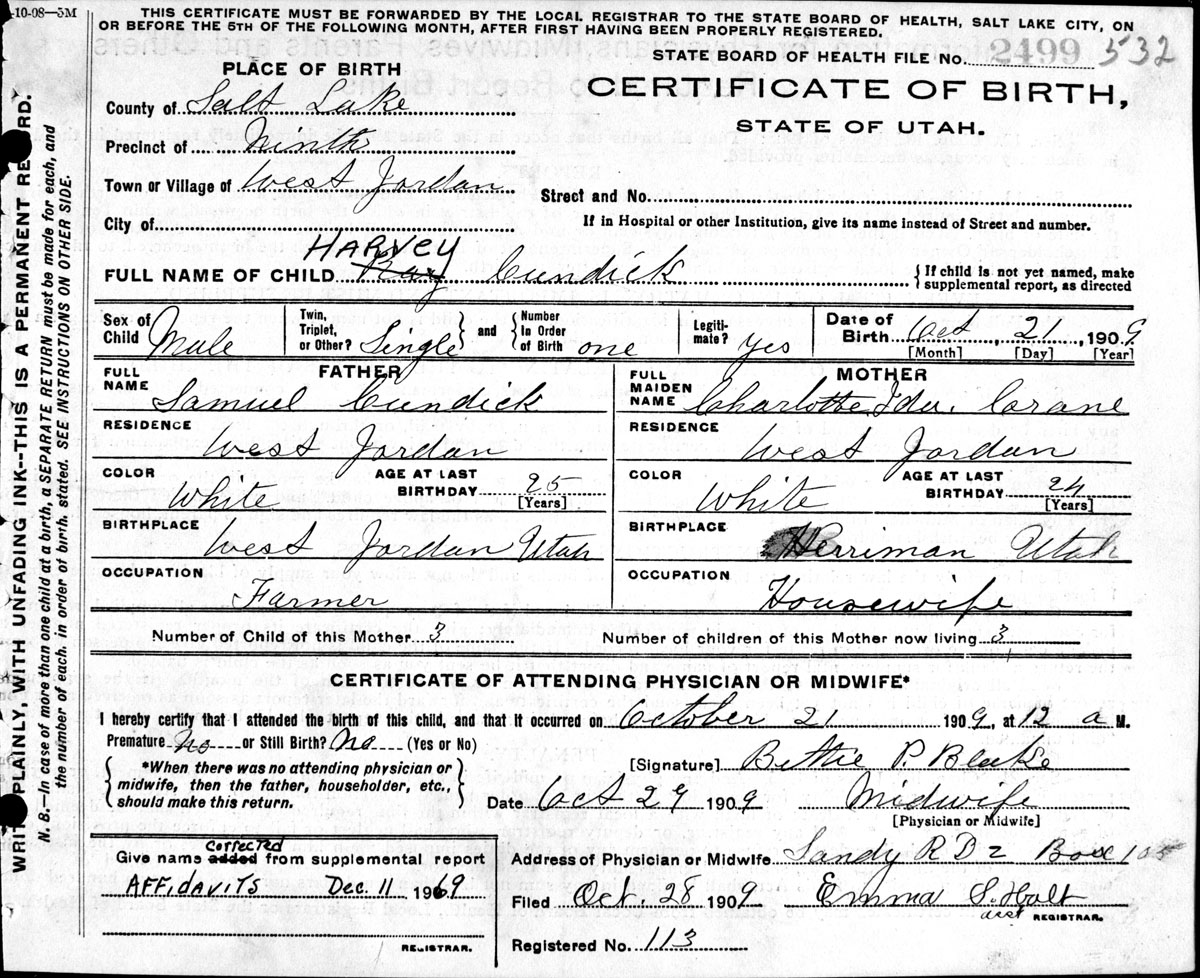 -10-08—5M
THIS CERTIFICATE MUST BE FORWARDED BY THE LOCAL REGISTRAR TO THE STATE BOARD OF HEALTH, SALT LAKE CITY, ON
OR BEFORE THE 5TH OF THE FOLLOWING MONTH, AFTER FIRST HAVING BEEN PROPERLY REGISTERED.
STATE BOARD OF HEALTH FILE No. 2499 532
PLACE OF BIRTH
CERTIFICATE OF BIRTH,
STATE OF UTAH.
County of Salt Lake
Precinct of Ninth
Town or Village of West Jordan
Street and No.
City of
If in Hospital or other Institution, give its name instead of Street and number.
HARVEY
FULL NAME OF CHILD Ray Cundick
{If child is not yet named, make
supplemental report, as directed
Sex of Child Male
Twin, Triplet, or Other? Single
and {Number In Order of Birth one
Legiti-mate? Yes
Date of Birth Oct, 21, 1909
[Month] [Day] [Year]
FATHER
FULL NAME Samuel Cundick
RESIDENCE West Jordan
COLOR White
AGE AT LAST BIRTHDAY 25
[Years]
BIRTHPLACE West Jordan Utah
OCCUPATION Farmer
MOTHER
FULL MAIDEN NAME Charlotte Ida. Crane
RESIDENCE West Jordan
COLOR White
AGE AT LAST BIRTHDAY 24
[Years]
BIRTHPLACE Herriman Utah
OCCUPATION Housewife
Number of Child of this Mother 3
Number of children of this Mother now living 3
CERTIFICATE OF ATTENDING PHYSICIAN OR MIDWIFE*
I hereby certify that I attended the birth of this child, and that it occurred on October 21 1909, at 12 a M.
Premature No or Still Birth? No (Yes or No)
*When there was no attending physician or
midwife, then the father, householder, etc.,
should make this return.
[Signature] Bettie P. Blake
Date Oct 29 1909
Midwife
[Physician or Midwife]
corrected
Give name added from supplemental report
AFFIDAVITS Dec. 11 1969
REGISTRAR.
Address of Physician or Midwife Sandy R D 2 Box
Filed Oct. 28 1909
Emma S. Holt
asst REGISTRAR.
Registered No. 113
WRITE PLAINLY, WITH UNFADING INK--THIS IS A PERMANENT RECORD.
N. B.—In case of more than one child at a birth, a SEPARATE RETURN must be made for each, and
the number of each, in order of birth, stated. SEE INSTRUCTIONS ON OTHER SIDE.